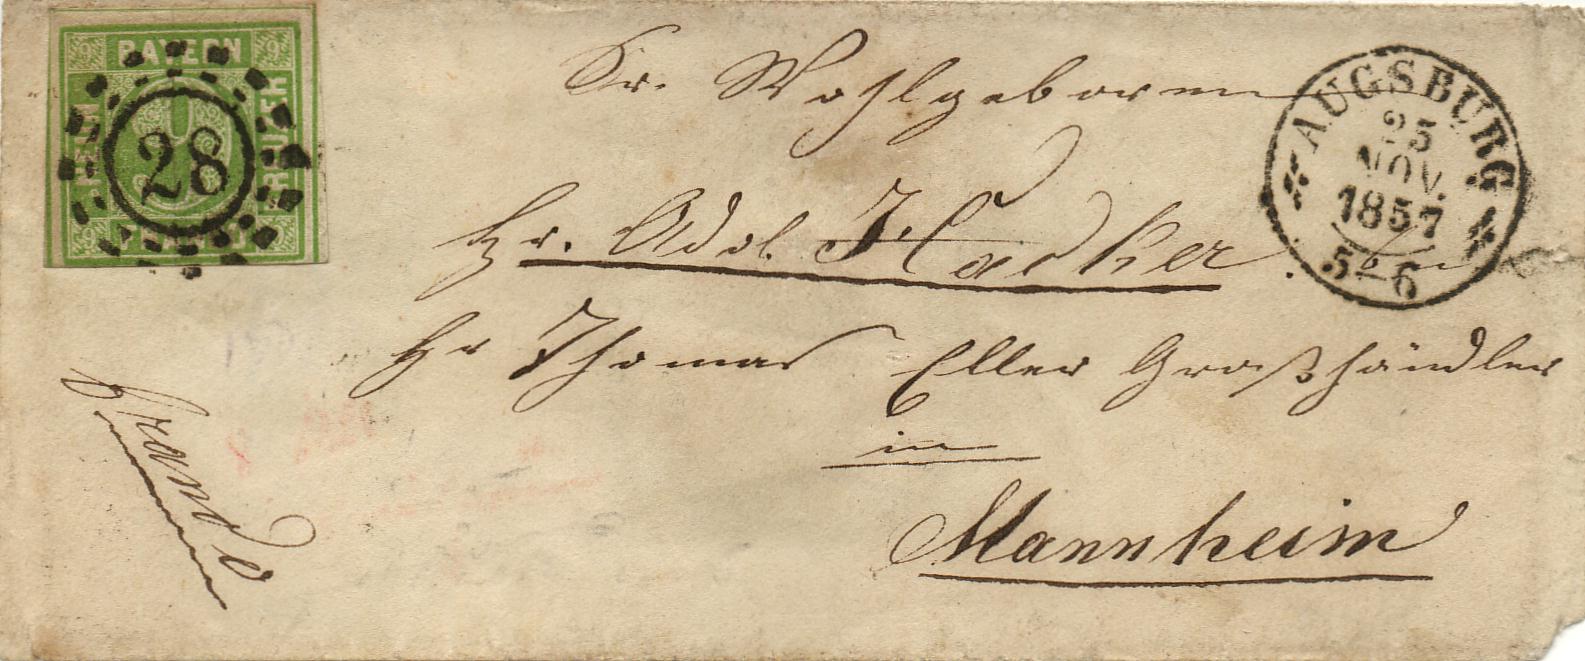 BAYERN
9 9
NEUN
KREUZER
9 9
28
AUGSBURG
25
NOV.
1857
5-6
Sr. Wohlgeboren
Hr. Adol. Hacker.
Hr Thomas Eller Großhändler
in
Mannheim